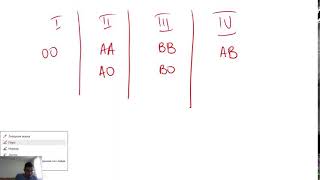 I II III IV
OO AA BB AB
AO BO